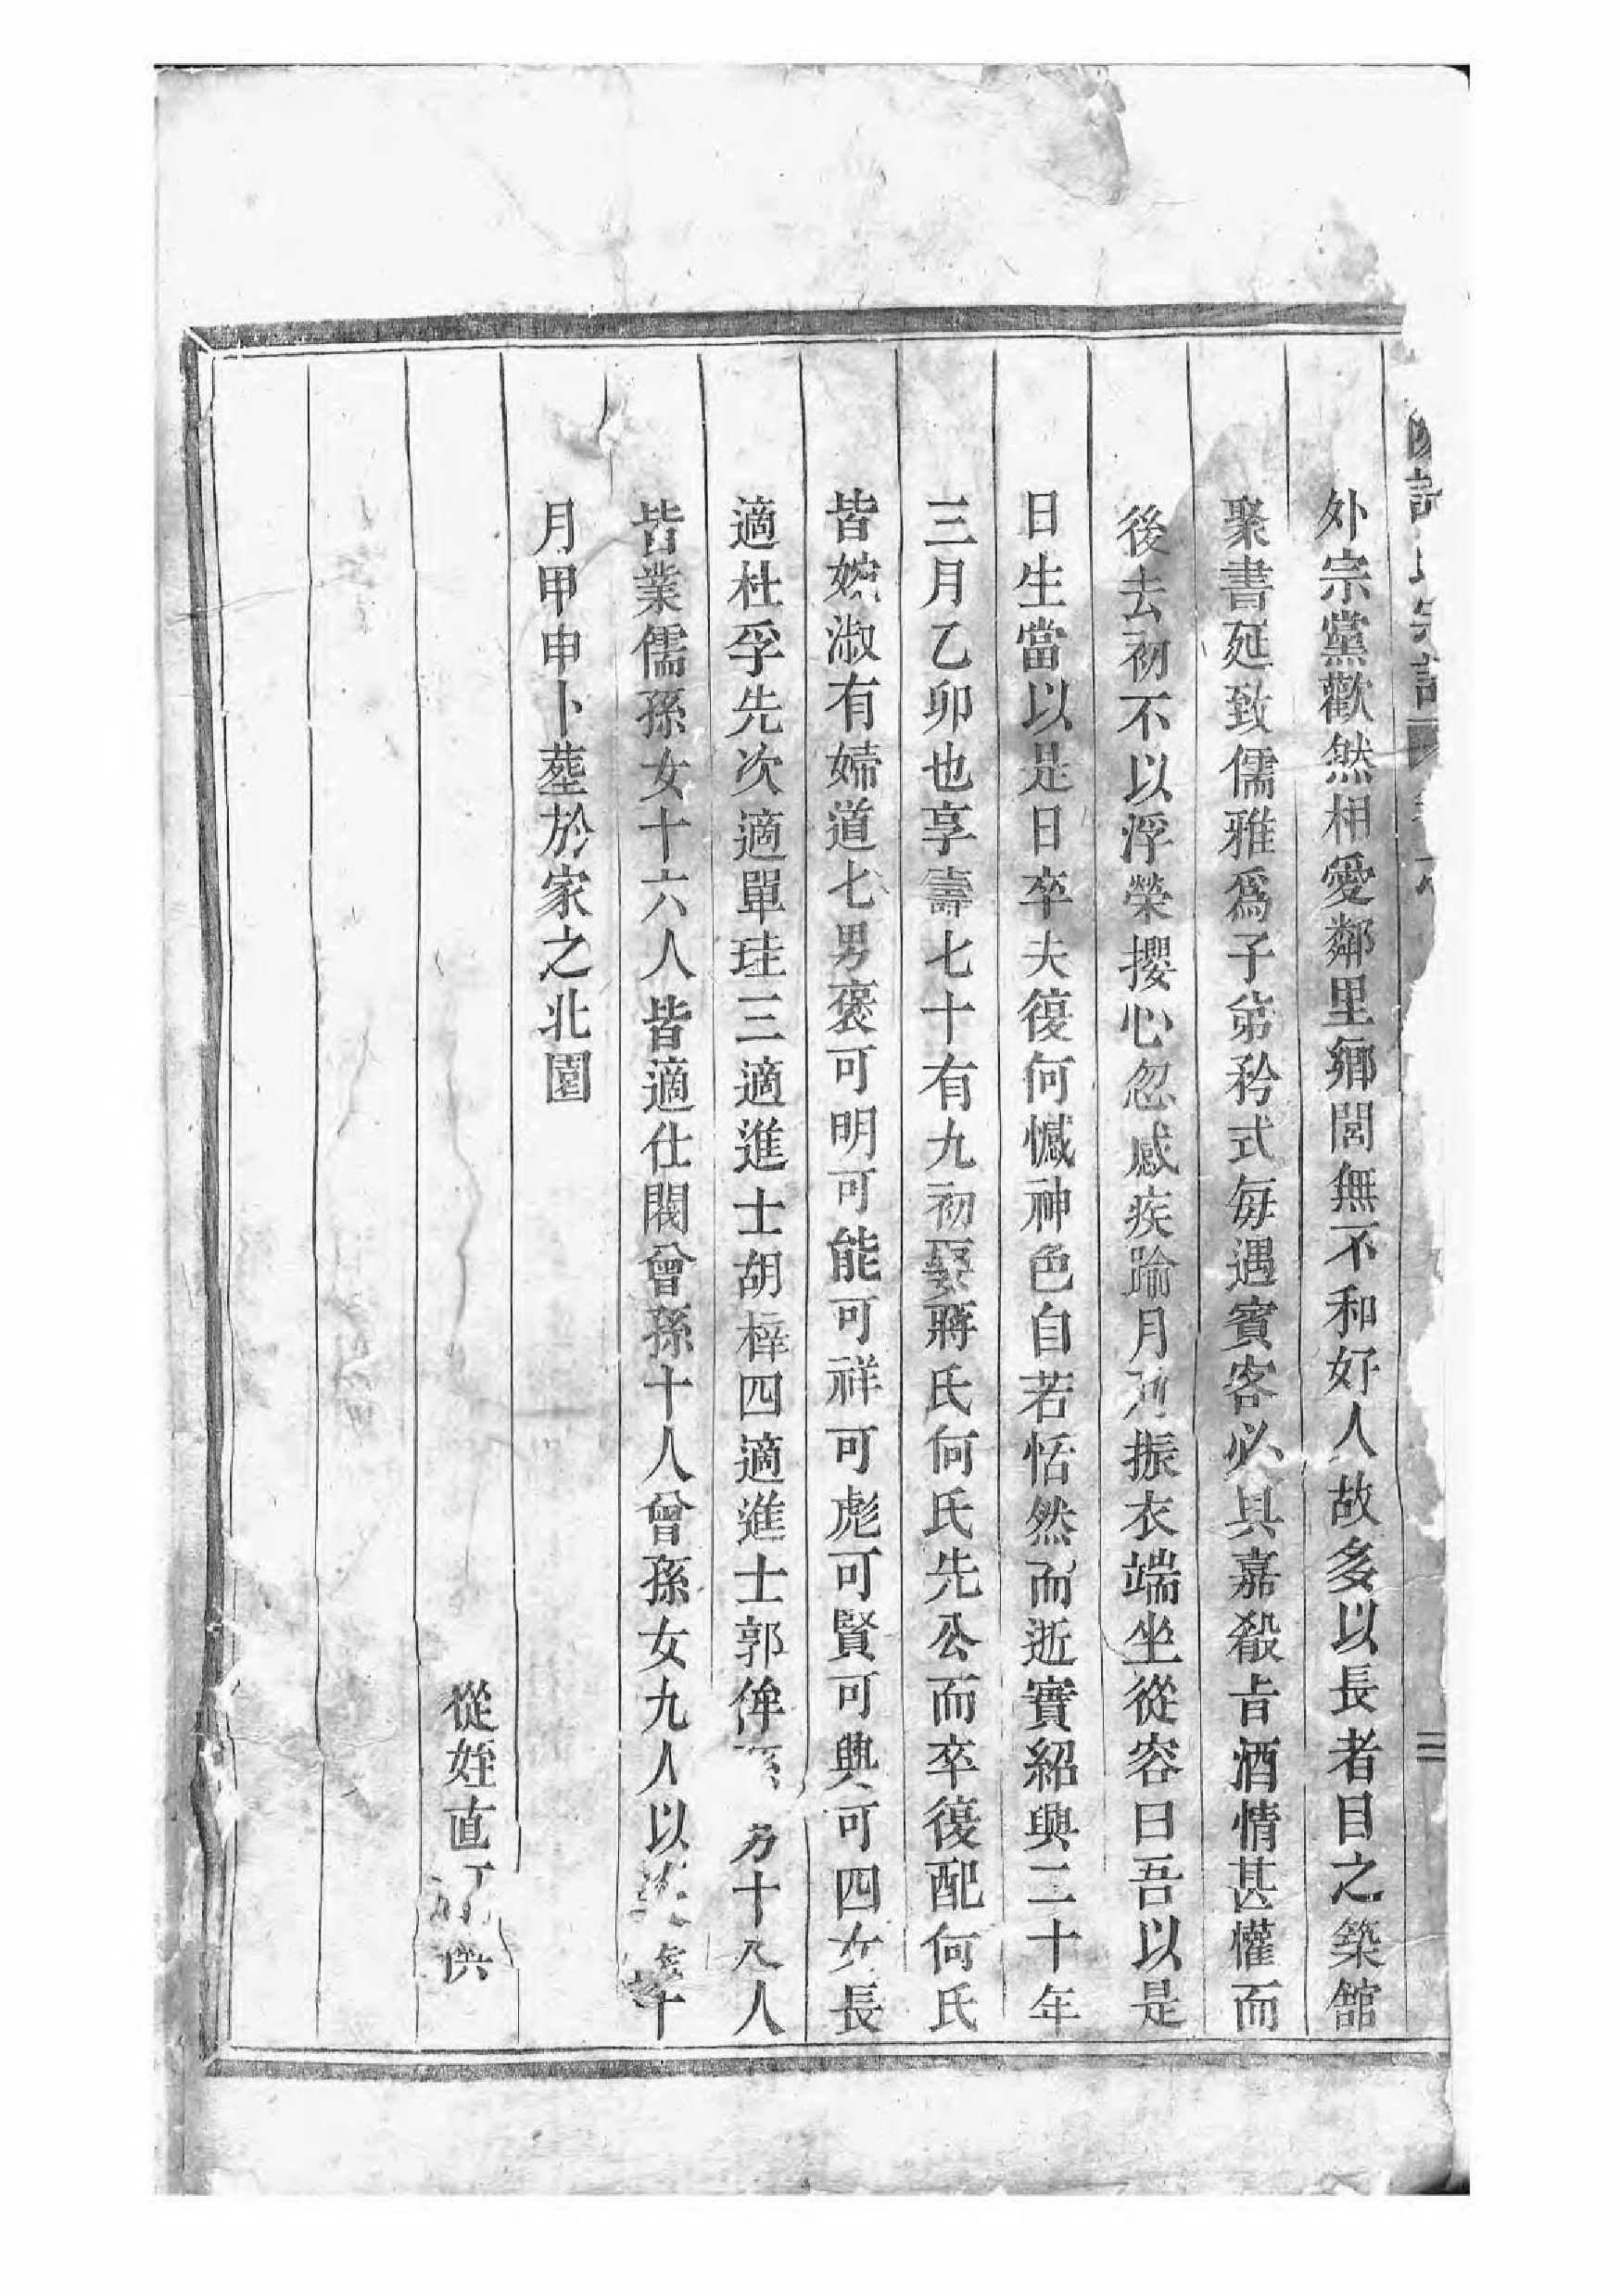 外宗黨歡然相愛鄰里鄉閭無不和好人故多以長者目之築館
聚書延致儒雅爲子弟矜式每遇賓客必具嘉殽旨酒情甚懽而
後去初不以浮榮攖心忽感疾踰月乃振衣端坐從容曰吾以是
日生當以是日卒夫復何憾神色自若恬然而逝實紹興二十年
三月乙卯也享壽七十有九初娶蔣氏何氏先公而卒復配何氏
皆婉淑有婦道七男褒可明可能可祥可彪可賢可興可四女長
適杜孚先次適單珪三適進士胡梓四適進士郭侔孫男十八人
皆業儒孫女十六人皆適仕閥曾孫十人曾孫女九人以十
月甲申卜葬於家之北園
從姪直供
二